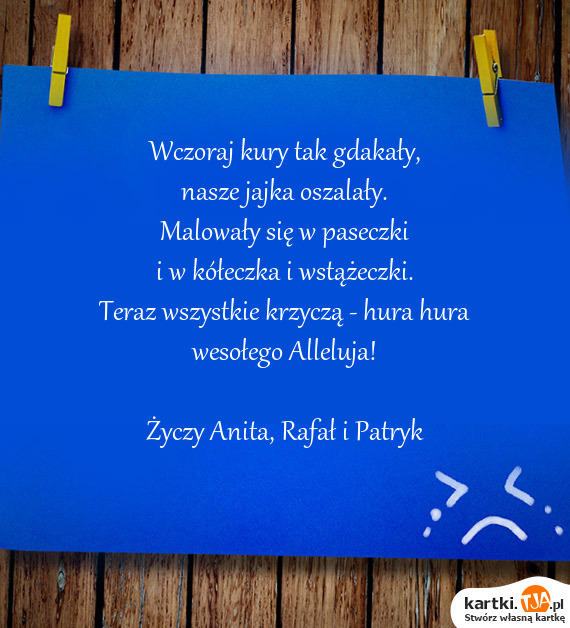 Wczoraj kury tak gdakały,
nasze jajka oszalały.
Malowały się w paseczki
i w kółeczka i wstążeczki.
Teraz wszystkie krzyczą - hura hura
wesołego Alleluja!
Życzy Anita, Rafał i Patryk
kartki.TJA.pl
Stwórz własną kartkę